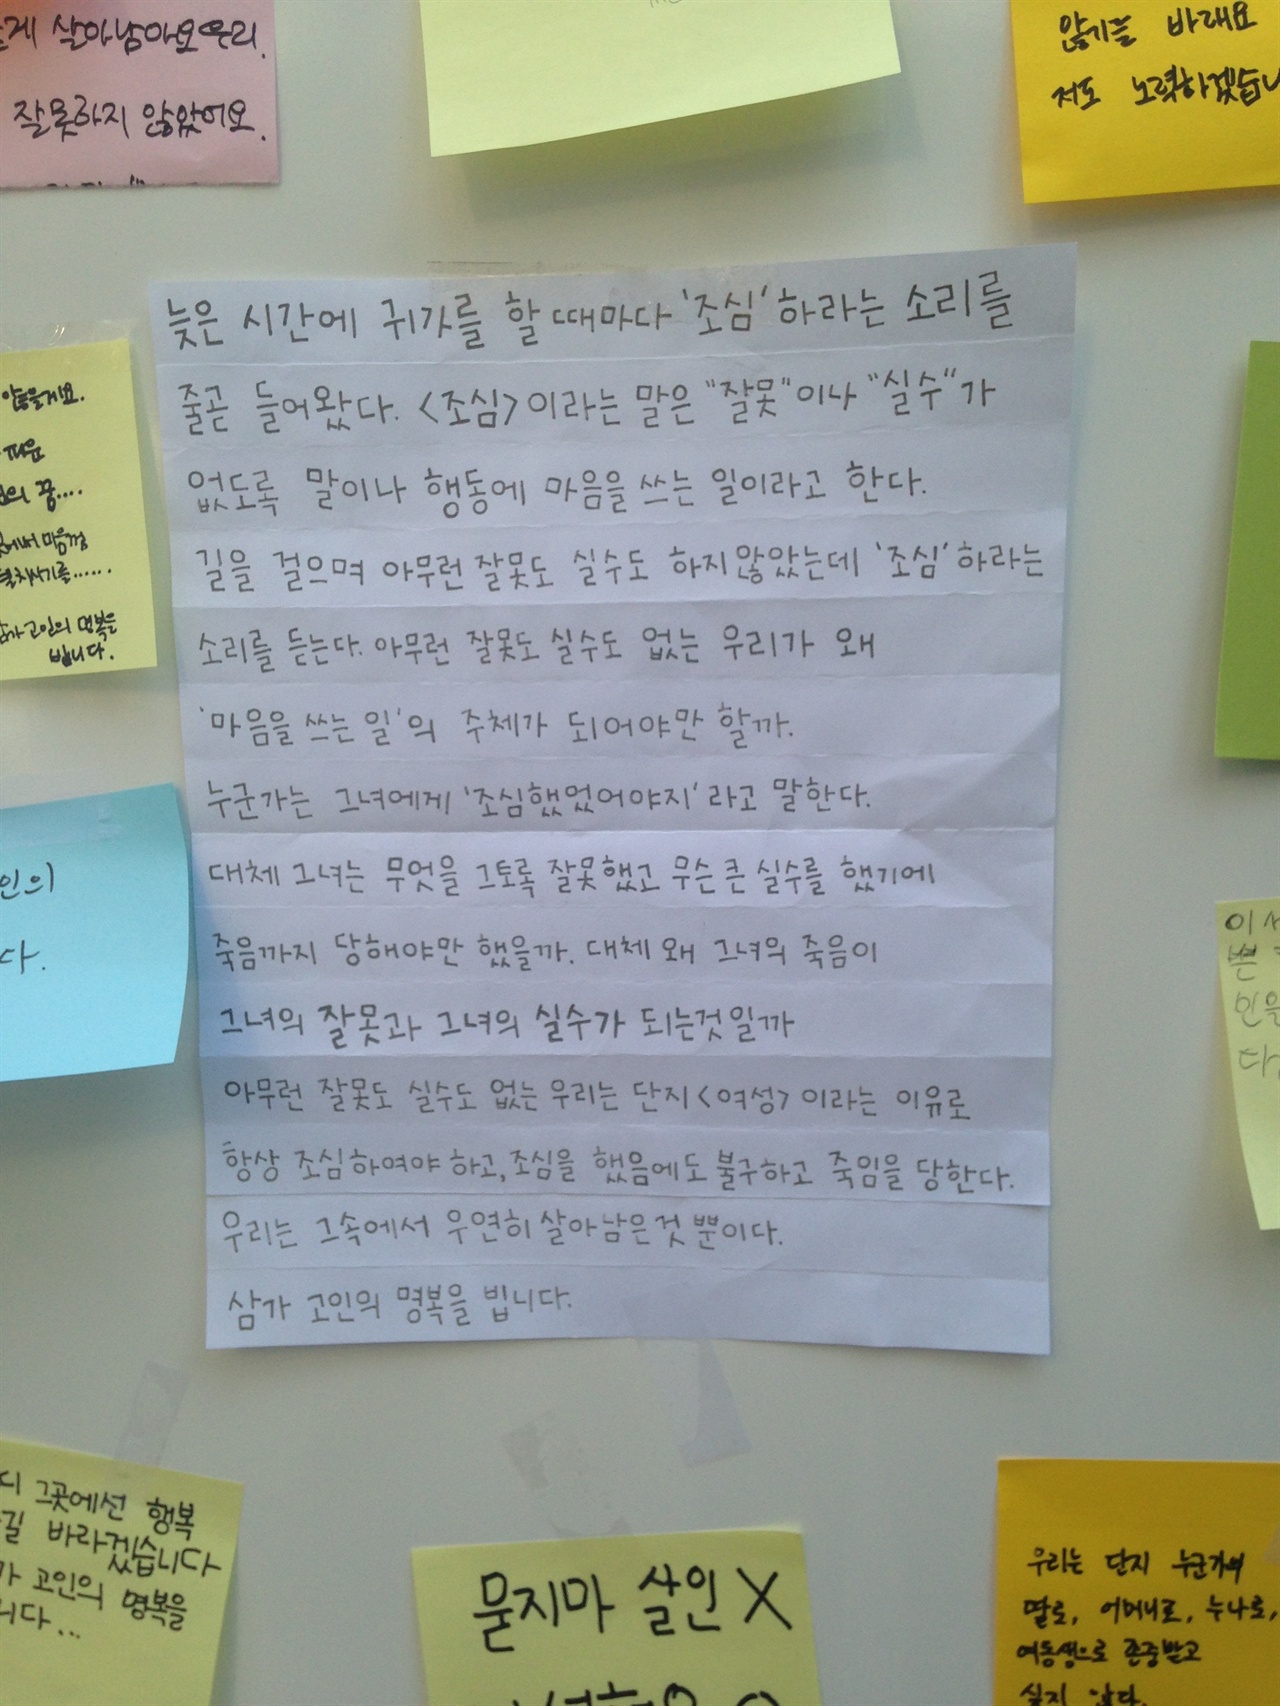 살아남아요우리.
잘못하지 않았어요.
않기를 바래요
저도 노력하겠습니
늦은 시간에 귀가를 할 때마다 '조심'하라는 소리를
줄곧 들어왔다. <조심>이라는 말은 "잘못"이나 "실수"가
없도록 말이나 행동에 마음을 쓰는 일이라고 한다.
길을 걸으며 아무런 잘못도 실수도 하지않았는데 '조심'하라는
소리를 듣는다. 아무런 잘못도 실수도 없는 우리가 왜
'마음을 쓰는 일'의 주체가 되어야만 할까.
누군가는 그녀에게 '조심했었어야지'라고 말한다.
대체 그녀는 무엇을 그토록 잘못했고 무슨 큰 실수를 했기에
죽음까지 당해야만 했을까. 대체 왜 그녀의 죽음이
그녀의 잘못과 그녀의 실수가 되는것일까
아무런 잘못도 실수도 없는 우리는 단지 <여성>이라는 이유로
항상 조심하여야 하고, 조심을 했음에도 불구하고 죽임을 당한다.
우리는 그속에서 우연히 살아남은것 뿐이다.
삼가 고인의 명복을 빕니다.
않을게요.
피운
의 꿈....
마음껏
고인의 명복을
빕니다.
인의
다.
이 세
쁜
인을
그곳에선 행복
길 바라겠습니다
가 고인의 명복을
니다...
묻지마 살인 X
우리는 단지 누군가의
딸로, 어머니로, 누나로,
여동생으로 존중받고
싶지 않다.